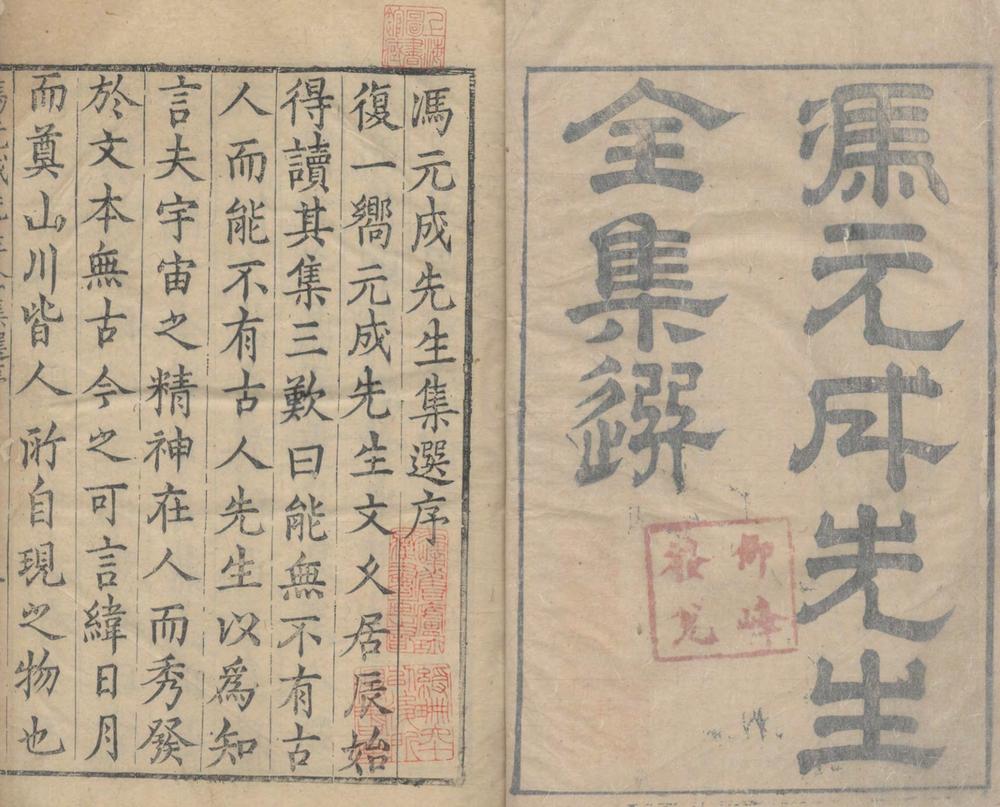 馮元成先生
全集選
馮元成先生集選序
復一嚮元成先生文久居辰始
得讀其集三歎曰能無不有古
人而能不有古人先生以爲知
言夫宇宙之精神在人而秀發
於文本無古今之可言緯日月
而奠山川皆人所自現之物也
上海
圖書
館藏